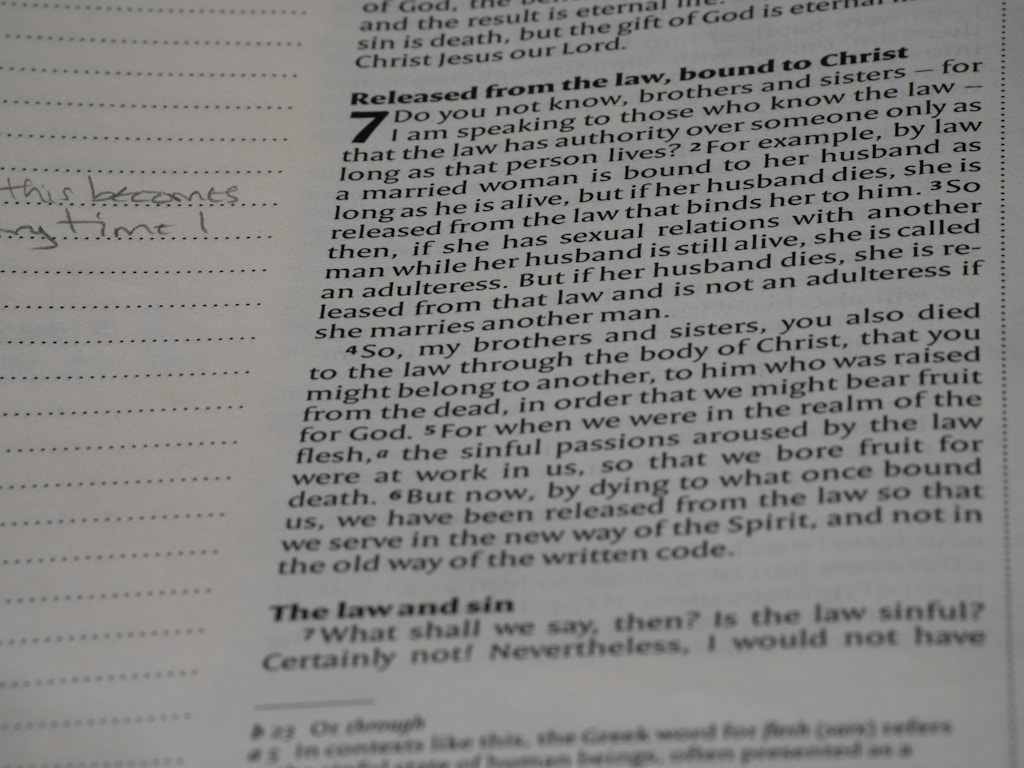 this becomes
my time!
of God, the
and the result is eternal life.
sin is death, but the gift of God is eternal
Christ Jesus our Lord.
Released from the law, bound to Christ
7 Do you not know, brothers and sisters – for
I am speaking to those who know the law –
that the law has authority over someone only as
long as that person lives? 2 For example, by law
a married woman is bound to her husband as
long as he is alive, but if her husband dies, she is
released from the law that binds her to him. 3 So
then, if she has sexual relations with another
man while her husband is still alive, she is called
an adulteress. But if her husband dies, she is re-
leased from that law and is not an adulteress if
she marries another man.
4 So, my brothers and sisters, you also died
to the law through the body of Christ, that you
might belong to another, to him who was raised
from the dead, in order that we might bear fruit
for God. 5 For when we were in the realm of the
flesh,a the sinful passions aroused by the law
were at work in us, so that we bore fruit for
death. 6 But now, by dying to what once bound
us, we have been released from the law so that
we serve in the new way of the Spirit, and not in
the old way of the written code.
The law and sin
7 What shall we say, then? Is the law sinful?
Certainly not! Nevertheless, I would not have
b 23 Or through
a 5 In contexts like this, the Greek word for flesh (sarx) refers
to the sinful state of human beings, often presented as a